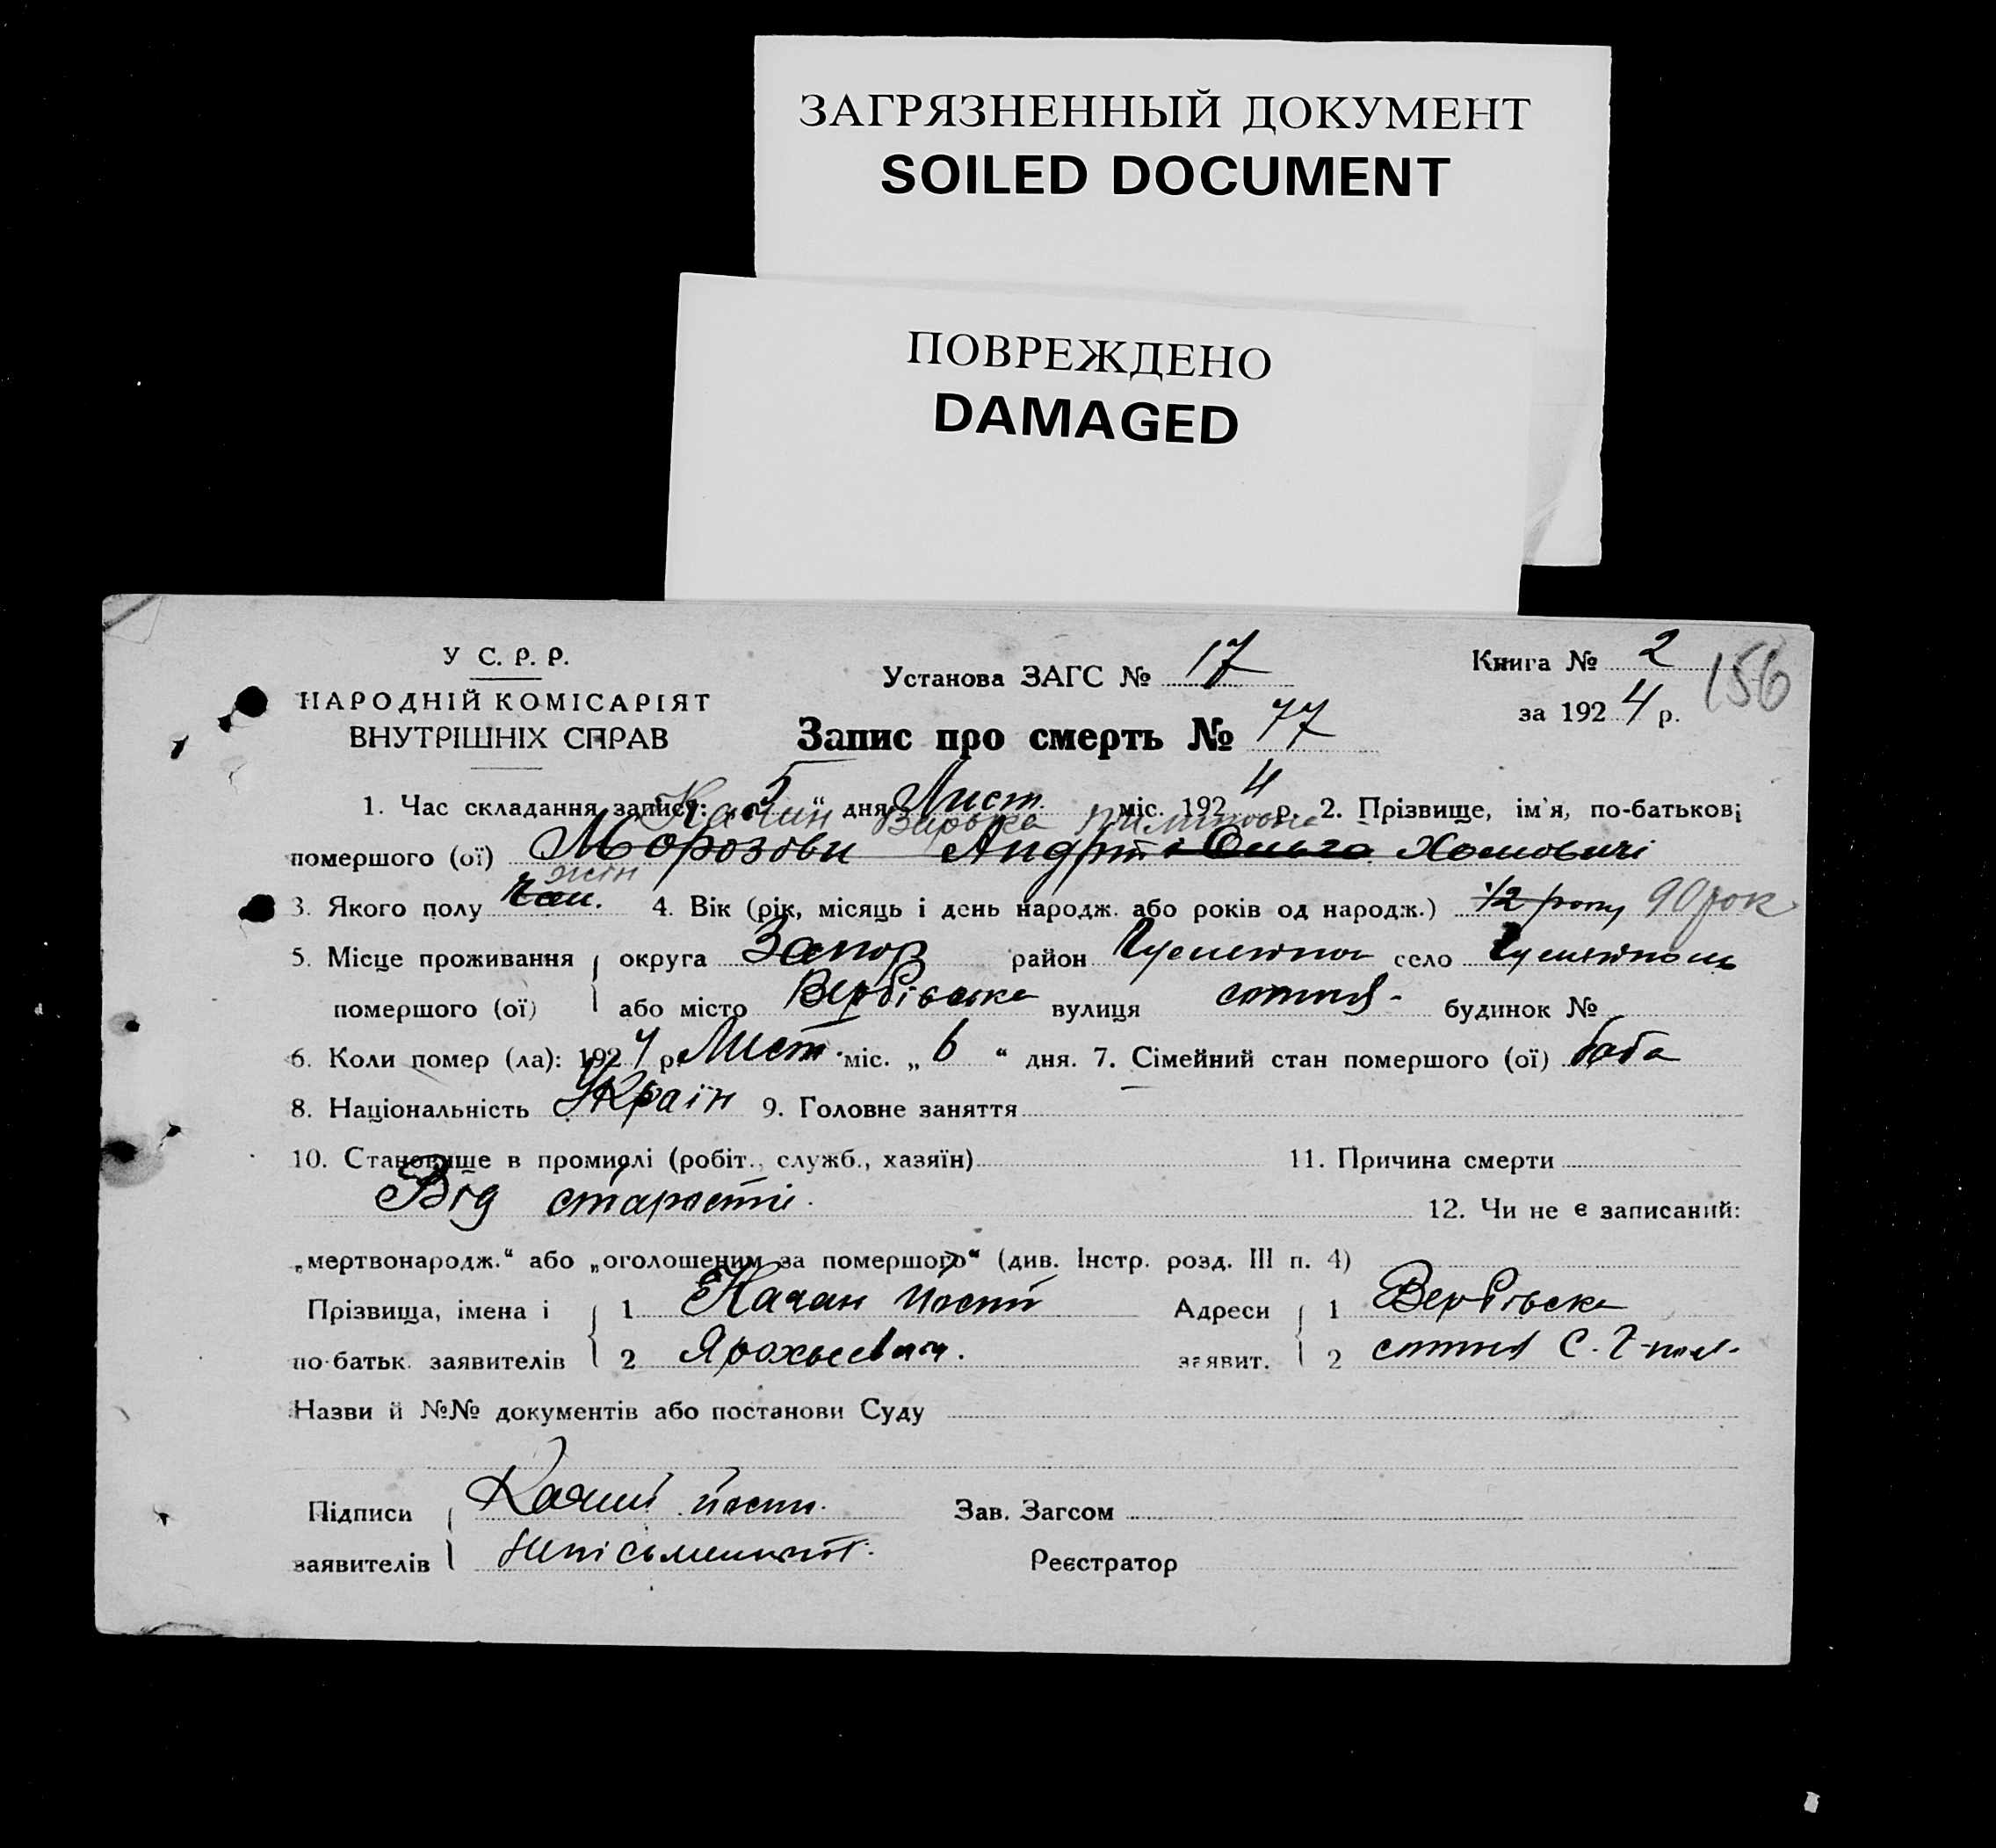 ЗАГРЯЗНЕННЫЙ ДОКУМЕНТ
SOILED DOCUMENT
ПОВРЕЖДЕНО
DAMAGED
У С. Р. Р.
НАРОДНІЙ КОМІСАРІЯТ
ВНУТРІШНІХ СПРАВ
Установа ЗАГС № 17
Книга № 2
за 1924 р.
156
Запис про смерть № 77
1. Час складання запису: „5“ дня Лист. міс. 1924 р. 2. Прізвище, ім'я, по-батькові
Качин Вирька
помершого (ої) Морозови Андрій Ольга Хомовичі
жін
3. Якого полу Чол. 4. Вік (рік, місяць і день народж. або років од народж.) 1/2 року 90 рок
5. Місце проживання помершого (ої) округа Запор район село
або місто Вербівська вулиця сотня будинок №
6. Коли помер (ла): 1924 р. Лист. міс. „6“ дня. 7. Сімейний стан помершого (ої) баба
8. Національність Україн 9. Головне заняття
10. Становище в промислі (робіт., служб., хазяїн) 11. Причина смерти
Від старости. 12. Чи не є записаний:
„мертвонародж.“ або „оголошеним за помершого“ (див. Інстр. розд. III п. 4)
Прізвища, імена і по-батьк. заявителів 1 Качан Адреси заявит. 1 Вербівська
2 2 сотня С.
Назви й №№ документів або постанови Суду
Підписи заявителів Зав. Загсом
Реєстратор